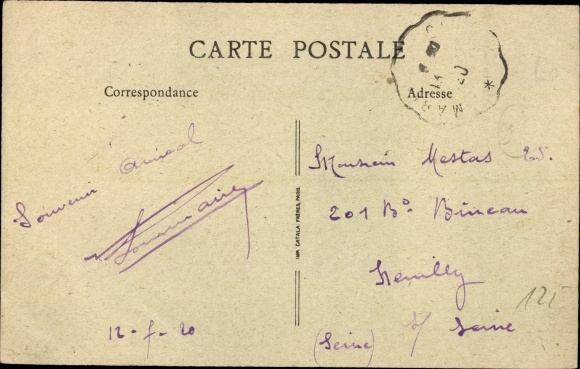 CARTE POSTALE
Correspondance
Adresse
MAR
Souvenir amical
12-5-20
IMP. CATALA FRÈRES, PARIS
Monsieur Mestas
201 Bd Bineau
Neuilly
s/ Seine
(Seine)
125